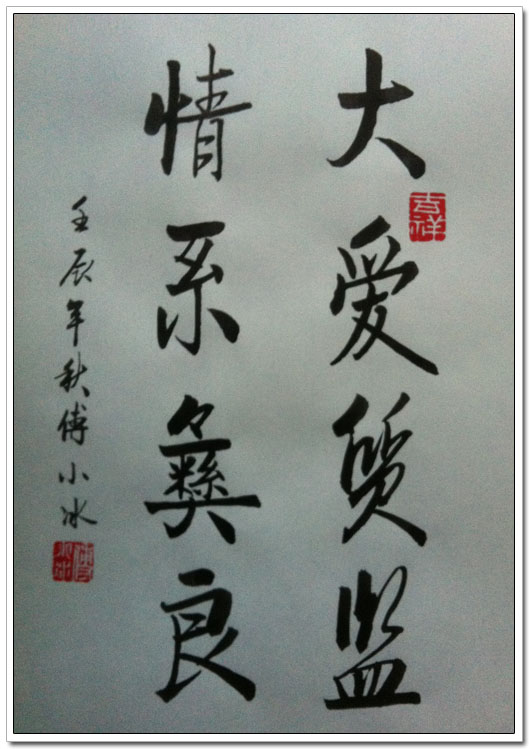 大爱质监
吉祥
情系彝良
壬辰年秋傅小冰